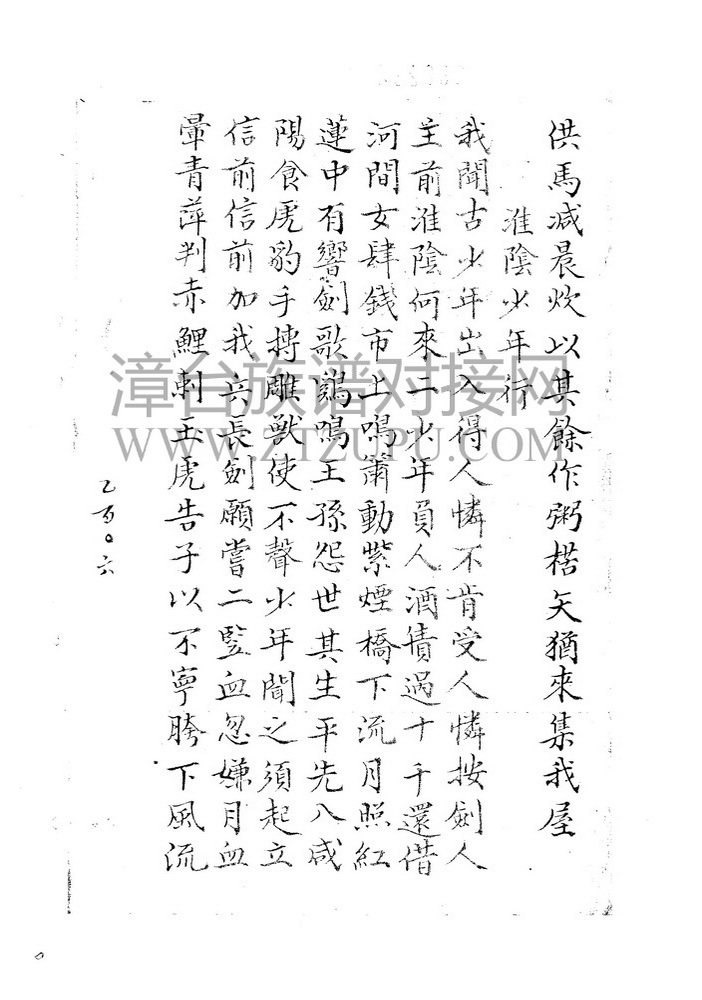 供馬減晨炊以其餘作粥楛矢猶來集我屋
淮陰少年行
我聞古少年出入得人憐不肯受人憐按劍人
主前淮陰何來二少年員人酒債過十千還借
河間女肆錢市上鳴簫動紫煙橋下流月照紅
蓮中有響劍歌鷄鳴王孫怨世其生平先入咸
陽食虎豹手搏雕獸使不聲少年聞之須起立
信前信前加我六長劍願嘗二豎血忽嫌月血
暈青萍判赤鯉刺玉虎告子以不寧胯下風流
乙百〇六
漳台族谱对接网
WWW.ZTZUPU.COM